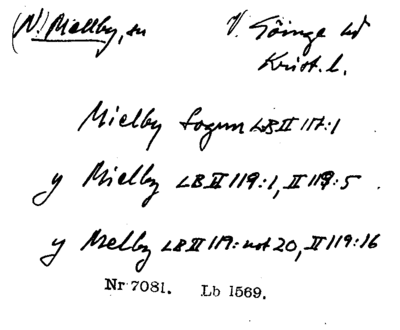 (N) Mellby, sn V. Göinge hd
Krist. l.
Mielby Sogn LB II 117:1
y Mielby LB II 119:1, II 119:5
y Melby LB II 119: not 20, II 119:16
Nr 7081. Lb 1569.